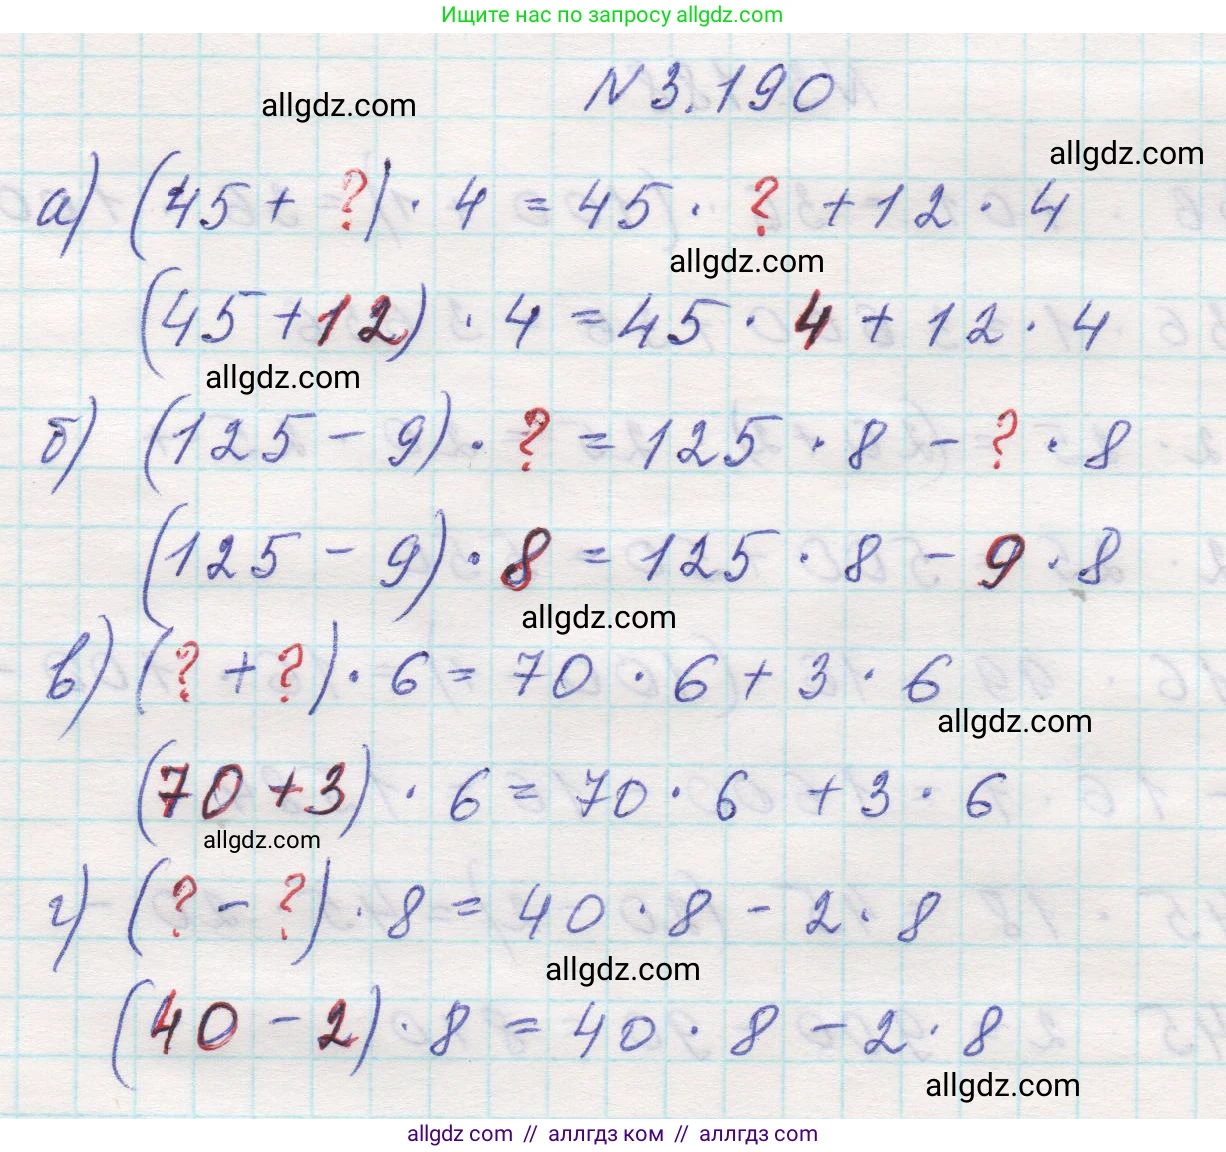 Ищите нас по запросу allgdz.com
N 3.190
allgdz.com
allgdz.com
а) (45 + ?) · 4 = 45 · ? + 12 · 4
allgdz.com
(45 + 12) · 4 = 45 · 4 + 12 · 4
allgdz.com
б) (125 - 9) · ? = 125 · 8 - ? · 8
(125 - 9) · 8 = 125 · 8 - 9 · 8
allgdz.com
в) (? + ?) · 6 = 70 · 6 + 3 · 6
allgdz.com
(70 + 3) · 6 = 70 · 6 + 3 · 6
allgdz.com
г) (? - ?) · 8 = 40 · 8 - 2 · 8
allgdz.com
(40 - 2) · 8 = 40 · 8 - 2 · 8
allgdz.com
allgdz com // аллгдз ком // аллгдз com